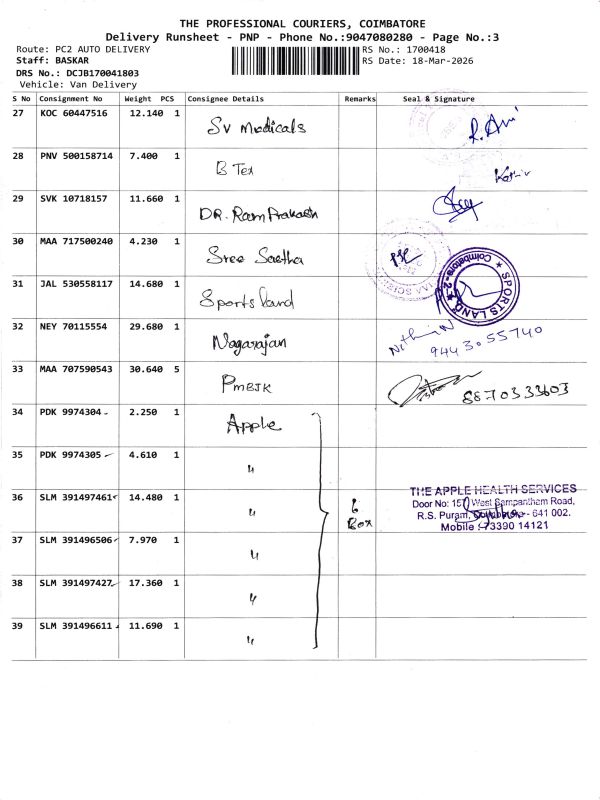 THE PROFESSIONAL COURIERS, COIMBATORE
Delivery Runsheet - PNP - Phone No.:9047080280 - Page No.:3
Route: PC2 AUTO DELIVERY
RS No.: 1700418
Staff: BASKAR
RS Date: 18-Mar-2026
DRS No.: DCJB170041803
Vehicle: Van Delivery
S No Consignment No Weight PCS Consignee Details Remarks Seal & Signature
27 KOC 60447516 12.140 1 Sv Medicals
28 PNV 500158714 7.400 1 B Tex
29 SVK 10718157 11.660 1 DR. Ram Prakash
30 MAA 717500240 4.230 1 Sree Sastha
31 JAL 530558117 14.680 1 Sports land
SPORTS LAND ★ Coimbatore-2 ★
32 NEY 70115554 29.680 1 Nagarajan
Nithin N
9443055740
33 MAA 707590543 30.640 5 PMBJK
8870333603
34 PDK 9974304 2.250 1 Apple
35 PDK 9974305 4.610 1 "
36 SLM 391497461 14.480 1 " 6 Box
THE APPLE HEALTH SERVICES
Door No: 157 West Sampantham Road,
R.S. Puram, Coimbatore - 641 002.
Mobile : 73390 14121
37 SLM 391496506 7.970 1 "
38 SLM 391497427 17.360 1 "
39 SLM 391496611 11.690 1 "